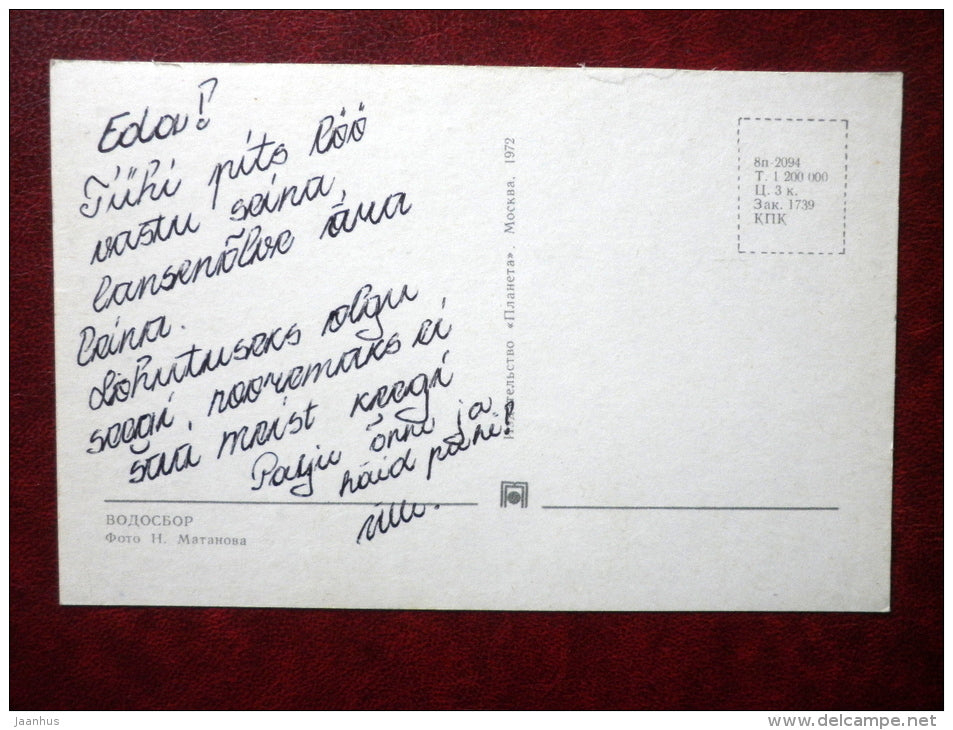 Eda!
Tühi pits löö
vastu seina,
lausenõlve ära
leina.
Lohutuseks olgu
seegi, nooremaks ei
saa meist keegi
Palju õnne ja
häid päevi!
Ülle.
ВОДОСБОР
Фото Н. Матанова
Издательство «Планета». Москва, 1972
8п-2094
Т. 1 200 000
Ц. 3 к.
Зак. 1739
КПК
Jaanhus
www.delcampe.net